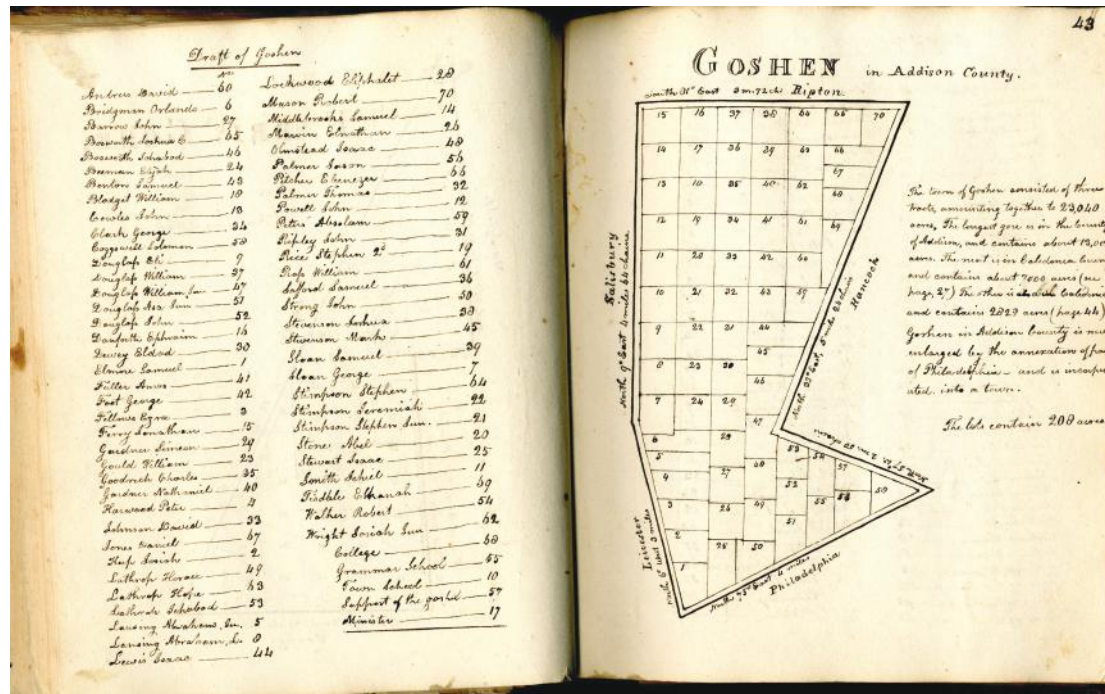 Draft of Goshen
No
Andrus David — 60
Bridgman Orlando — 6
Barrow John — 27
Bosworth Joshua C — 65
Bosworth Ichabod — 46
Beeman Elijah — 24
Benton Samuel — 43
Blodget William — 18
Cowles John — 13
Clark George — 34
Coggswell Solomon — 58
Douglass Eli — 9
Douglass William — 37
Douglass William Jun — 47
Douglass Asa Jun — 51
Douglass John — 52
Danforth Ephraim — 16
Dewey Eldad — 30
Elmore Samuel — 1
Fuller Amos — 41
Foot George — 42
Fellows Ezra — 3
Ferry Jonathan — 15
Gardner Simeon — 29
Gould William — 23
Goodrich Charles — 35
Gardner Nathaniel — 40
Harwood Peter — 4
Johnson David — 33
Jones Daniel — 67
Josiah — 2
Lathrop Horace — 49
Lathrop Hope — 63
Lathrop Ichabod — 53
Lansing Abraham, Ju. 5
Lansing Abraham, 8
Lewis Isaac — 44
Lockwood Eliphalet — 28
Mason Robert — 70
Middlebrooks Samuel — 14
Marvin Elnathan — 26
Olmstead Isaac — 48
Palmer — 56
Pitcher Ebenezer — 66
Palmer Thomas — 32
Powell John — 12
Peters Absalom — 59
Ripley John — 31
Rice Stephen 2d — 19
Ross William — 61
Safford Samuel — 36
Strong John — 50
Stevenson Joshua — 38
Stevenson Mark — 45
Sloan Samuel — 39
Sloan George — 7
Stimpson Stephen — 64
Stimpson Jeremiah — 22
Stimpson Stephen Jun. — 21
Stone Abel — 20
Stewart Isaac — 25
Smith — 11
Tisdble Elkanah — 69
Walker Robert — 54
Wright Josiah Jun — 62
College — 68
Grammar School — 55
Town School — 10
Support of the gospel — 57
Minister — 17
43
GOSHEN in Addison County.
South 81° East 3 m. 72 ch Ripton
15 16 37 38 64 65 70
14 17 36 39 63 66
67
13 18 35 40 62 68
12 19 34 41 61 69
11 20 33 42 60
10 21 32 43 59
9 22 31 44
45
8 23 30 46
7 24 29 47
6 28
5 53 54 57
4 27 48 52 58 59
3 26 49 55
51
2 25 50
1
Salisbury
North 9° East 4 miles 64 chains
Hancock
North 32° East, 5 miles chains
Leicester
North 6° West 3 miles
North 75° East 4 miles
Philadelphia
North 57° W. 2 m chains
The town of Goshen consisted of three
tracts, amounting together to 23,040
acres, The largest gore is in the County
of Addison, and contains about 13,00
acres. The next is in Caledonia Coun
and contains about 7000 acres (see
page, 27) The other is Caledonia
and contains 2829 acres (page 44)
Goshen in Addison County is now
enlarged by the annexation of pa
of Philadelphia — and is incorpor
ated, into a town.
The lots contain 208 acres